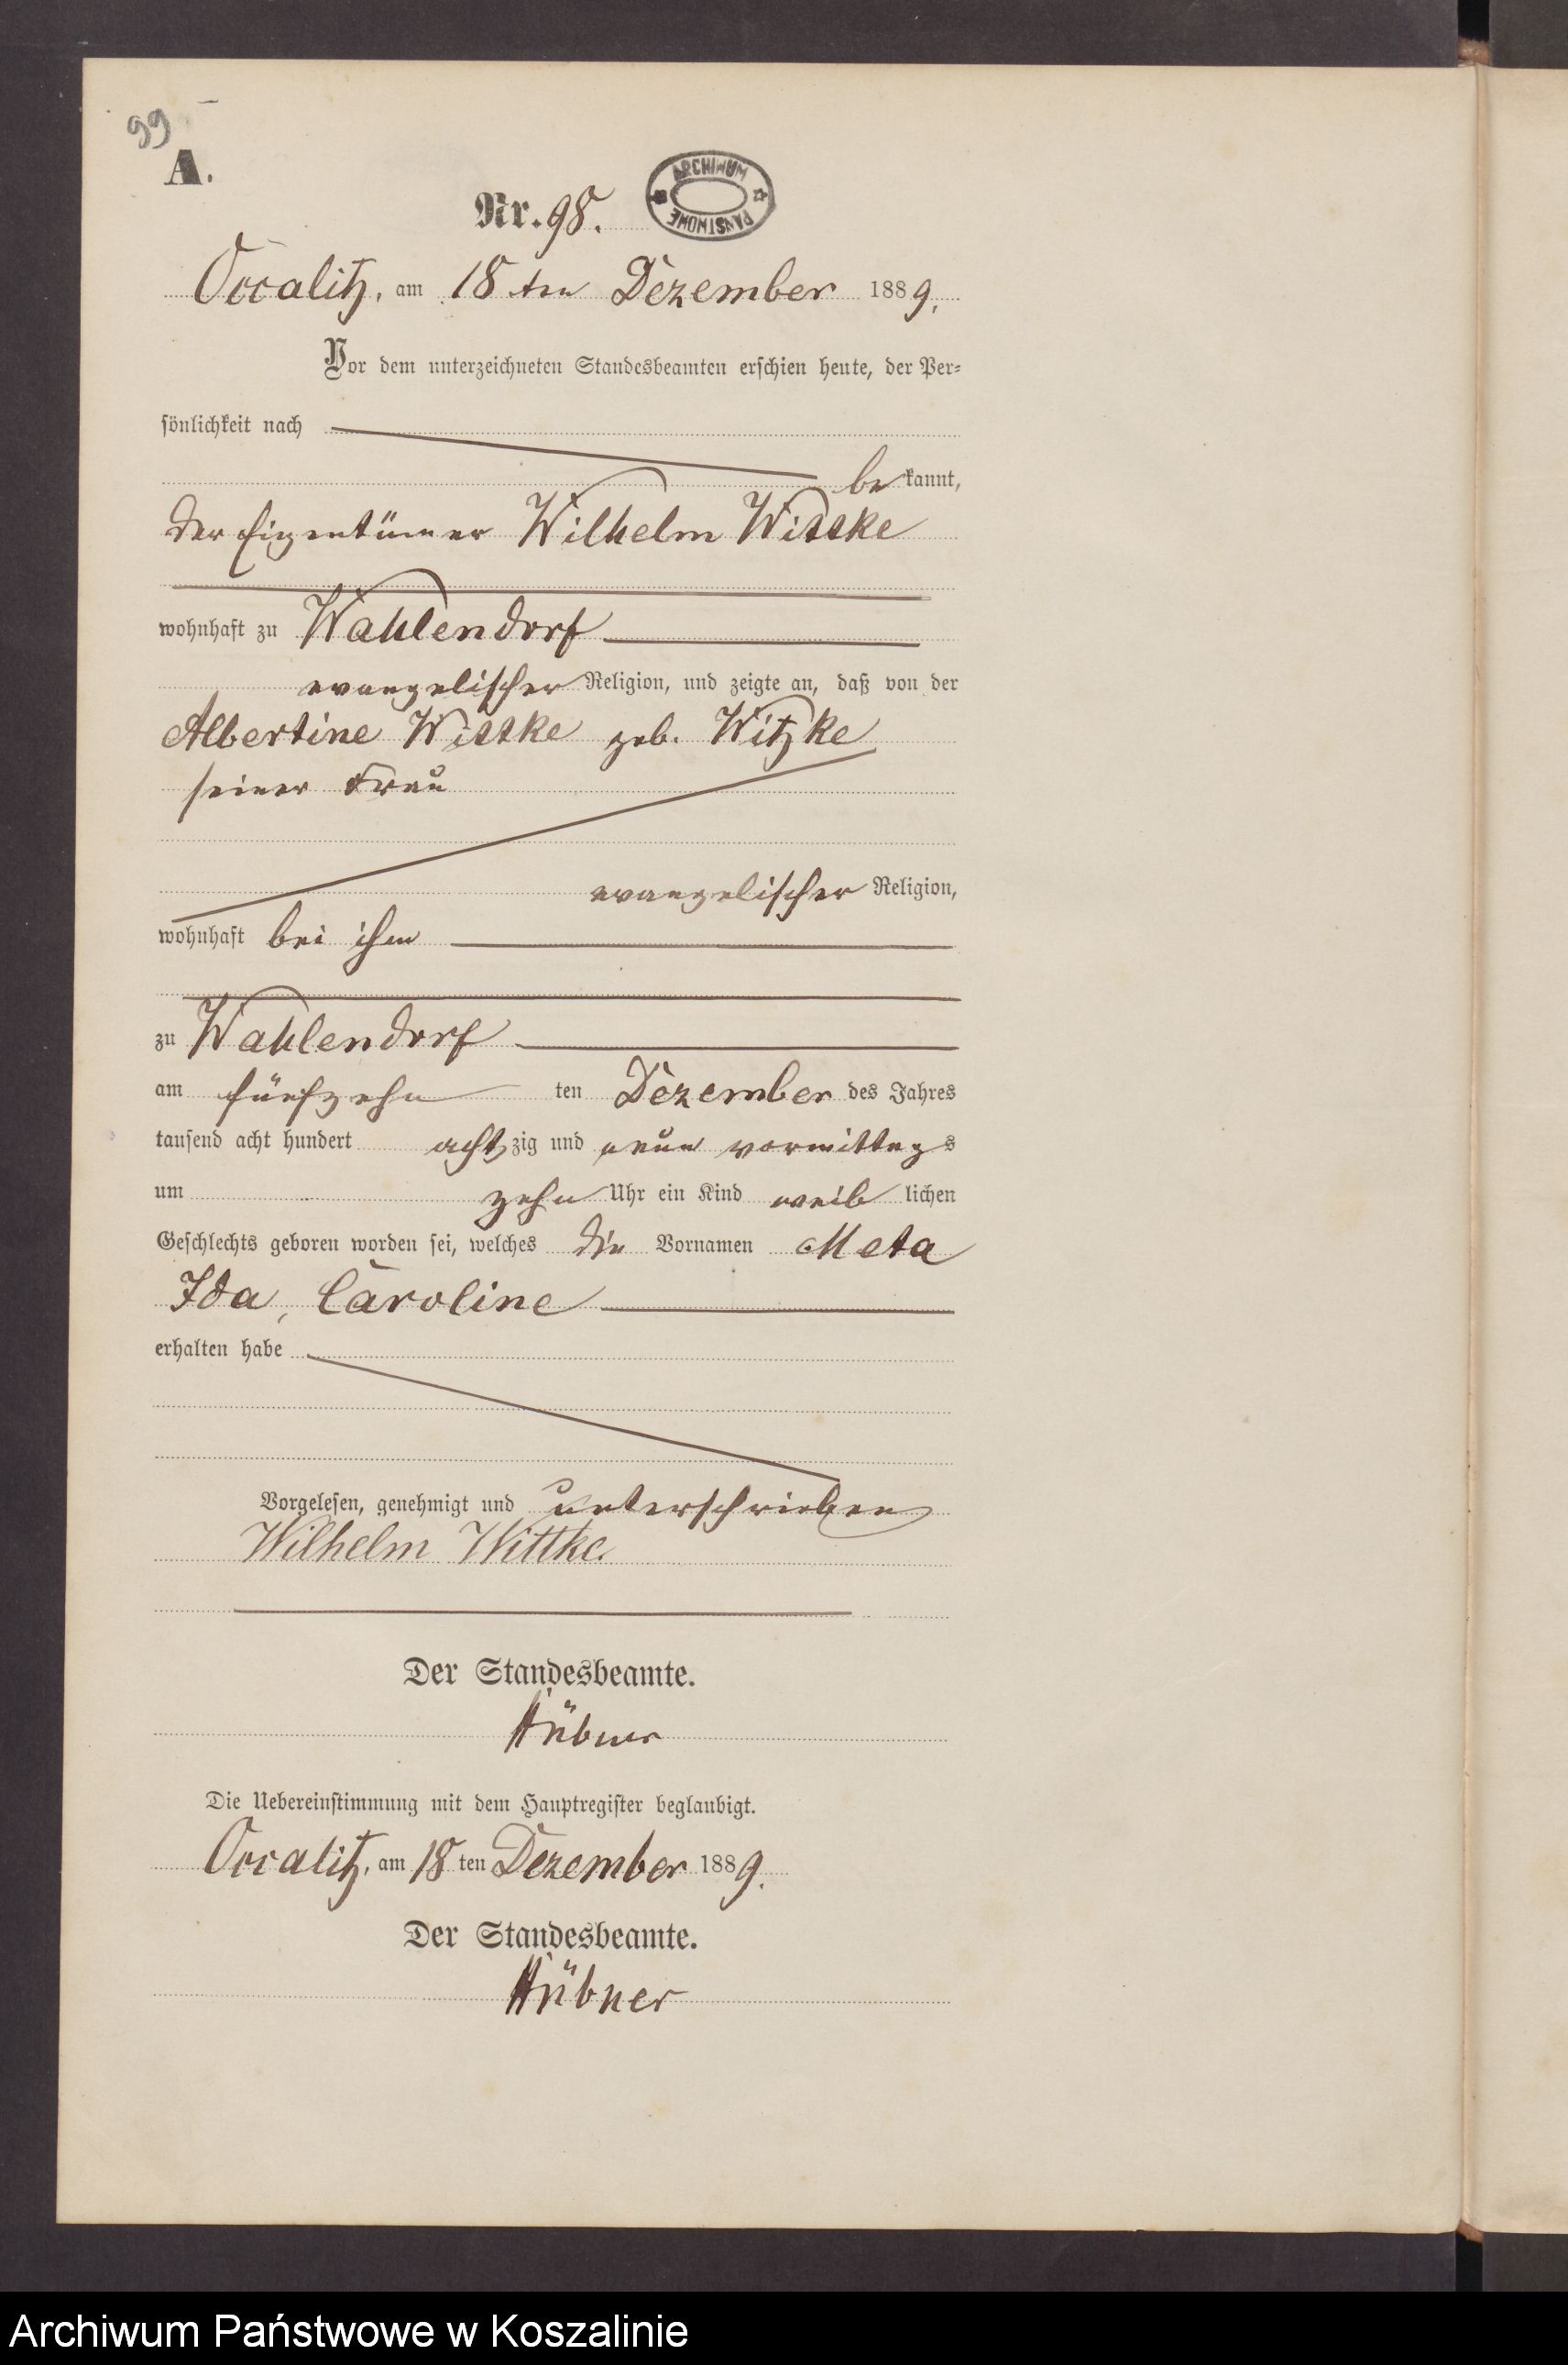 99
A.
Nr. 98.
ARCHIWUM PAŃSTWOWE
Occalitz, am 18ten Dezember 1889.
Vor dem unterzeichneten Standesbeamten erschien heute, der Per-
sönlichkeit nach
bekannt,
der Eigentümer Wilhelm Wittke
wohnhaft zu Wahlendorf
evangelischer Religion, und zeigte an, daß von der
Albertine Wittke geb. Witzke
seiner Frau
evangelischer Religion,
wohnhaft bei ihm
zu Wahlendorf
am fünfzehn ten Dezember des Jahres
tausend acht hundert achtzig und neun vormittags
um zehn Uhr ein Kind weiblichen
Geschlechts geboren worden sei, welches die Vornamen Meta
Ida, Caroline
erhalten habe
Vorgelesen, genehmigt und unterschrieben
Wilhelm Wittke.
Der Standesbeamte.
Hübner
Die Uebereinstimmung mit dem Hauptregister beglaubigt.
Occalitz, am 18 ten Dezember 1889.
Der Standesbeamte.
Hübner
Archiwum Państwowe w Koszalinie